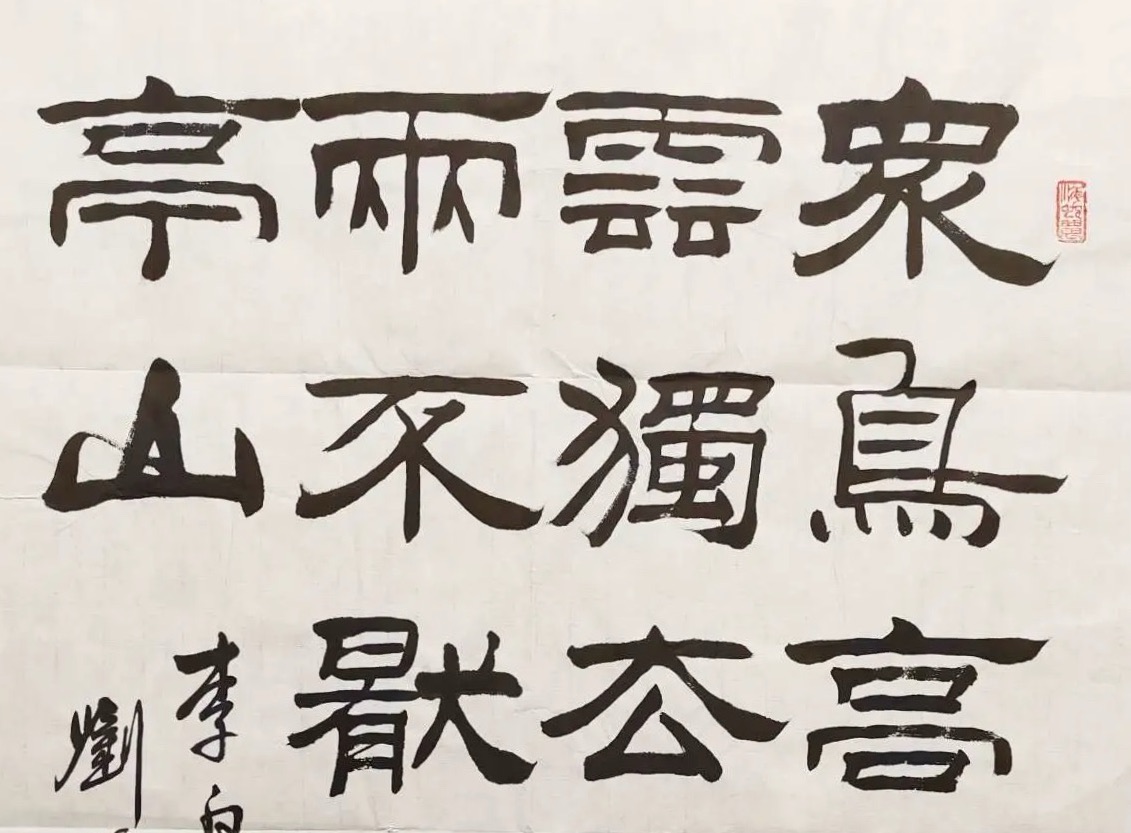 衆鳥高
雲獨去
兩不猒
亭山
李白
劉